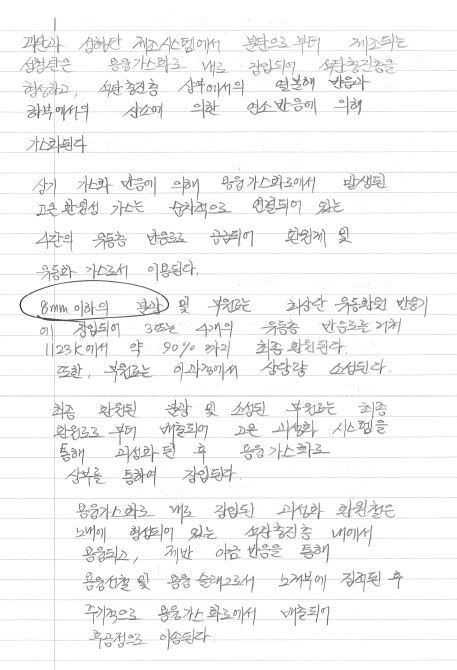 괴탄과 성형탄 제조시스템에서 분탄으로부터 제조되는
성형탄은 용융가스화로 내로 장입되어 석탄충진층을
형성하고, 석탄충진층 상부에서의 열분해 반응과
하부에서의 산소에 의한 연소반응에 의해
가스화된다
상기 가스화 반응에 의해 용융가스화로에서 발생된
고온 환원성 가스는 순차적으로 연결되어 있는
4단의 유동층 반응로로 공급되어 환원제 및
유동화 가스로서 이용된다.
8mm 이하의 분광 및 부원료는 최상단 유동환원 반응기
에 장입되어 3또는 4개의 유동층 반응로를 거쳐
1123K에서 약 90% 까지 최종 환원된다.
또한, 부원료는 이과정에서 상당량 소성된다.
최종 환원된 분광 및 소성된 부원료는 최종
환원로로 부터 배출되어 고온 괴성화 시스템을
통해 괴성화 된 후 용융가스화로
상부를 통하여 장입된다.
용융가스화로 내로 장입된 괴성화 환원철은
노내에 형성되어 있는 석탄충진층 내에서
용융되고, 제반 야금 반응을 통해
용융선철 및 용융 슬래그로서 노저부에 집적된 후
주기적으로 용융가스화로에서 배출되어
후공정으로 이송된다.